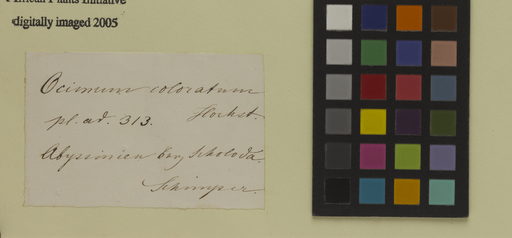 African Plants Initiative
digitally imaged 2005
Ocimum coloratum
Hochst.
pl. ad. 313.
Abyssinien bey Scholoda
Schimper